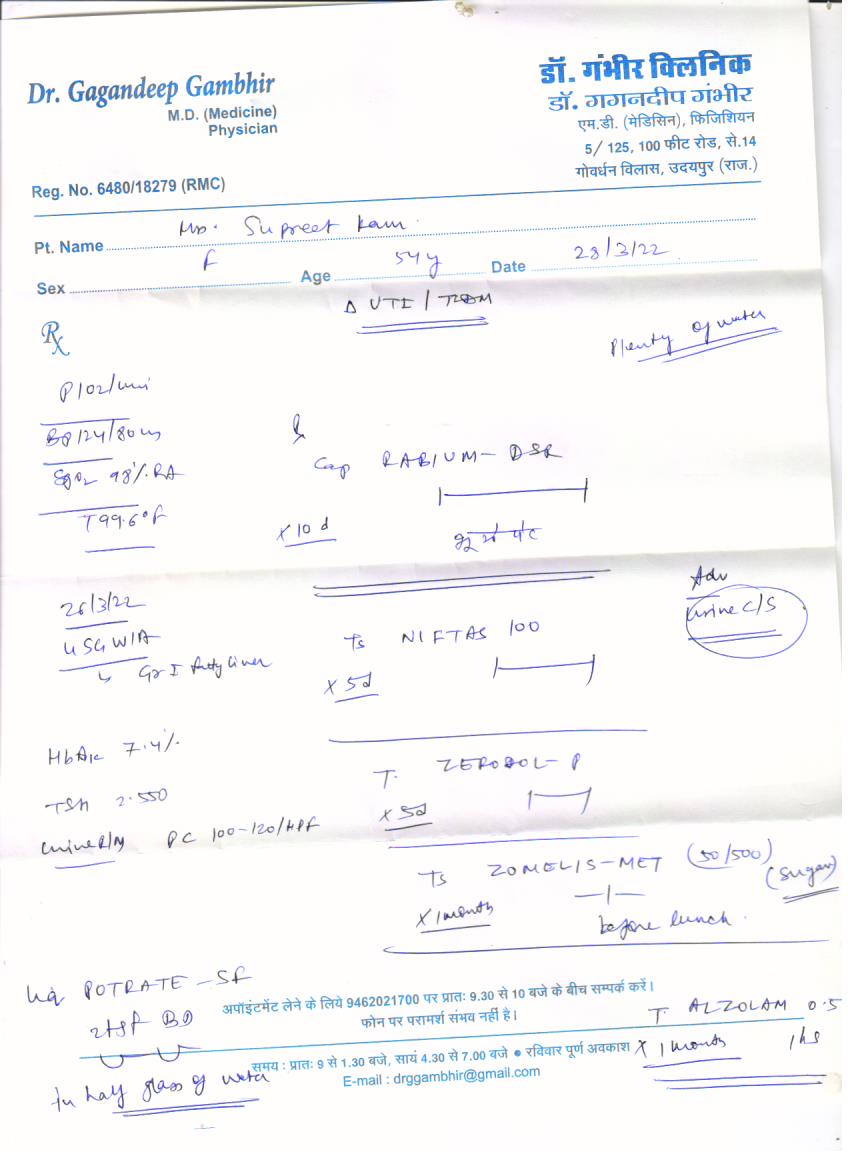 Dr. Gagandeep Gambhir
M.D. (Medicine)
Physician
Reg. No. 6480/18279 (RMC)
डॉ. गंभीर क्लिनिक
डॉ. गगनदीप गंभीर
एम.डी. (मेडिसिन), फिजिशियन
5/ 125, 100 फीट रोड, से.14
गोवर्धन विलास, उदयपुर (राज.)
Pt. Name Mrs. Supreet Kaur
Sex F Age 54y Date 28/3/22
Δ UTI / T2DM
Plenty of water
Rx
P 102/min
BP 124/80
SpO2 98% RA
T 99.6°F
Cap RABIUM-DSR
X 10 d
26/3/22
USG W/A
↳ Gr I fatty liver
Adv
Urine C/S
NIFTAS 100
X 5d
HbA1c 7.4%
TSH 2.550
Urine R/M PC 100-120/HPF
T. ZERODOL-P
X 5d
ZOMELIS-MET (50/500)
(Sugar)
X 1month before lunch.
Liq POTRATE-SF
2tsf BD
in half glass of water
T. ALZOLAM 0.5
X 1month 1hs
अपॉइंटमेंट लेने के लिये 9462021700 पर प्रातः 9.30 से 10 बजे के बीच सम्पर्क करें।
फोन पर परामर्श संभव नहीं है।
समय : प्रातः 9 से 1.30 बजे, सायं 4.30 से 7.00 बजे ● रविवार पूर्ण अवकाश
E-mail : drggambhir@gmail.com